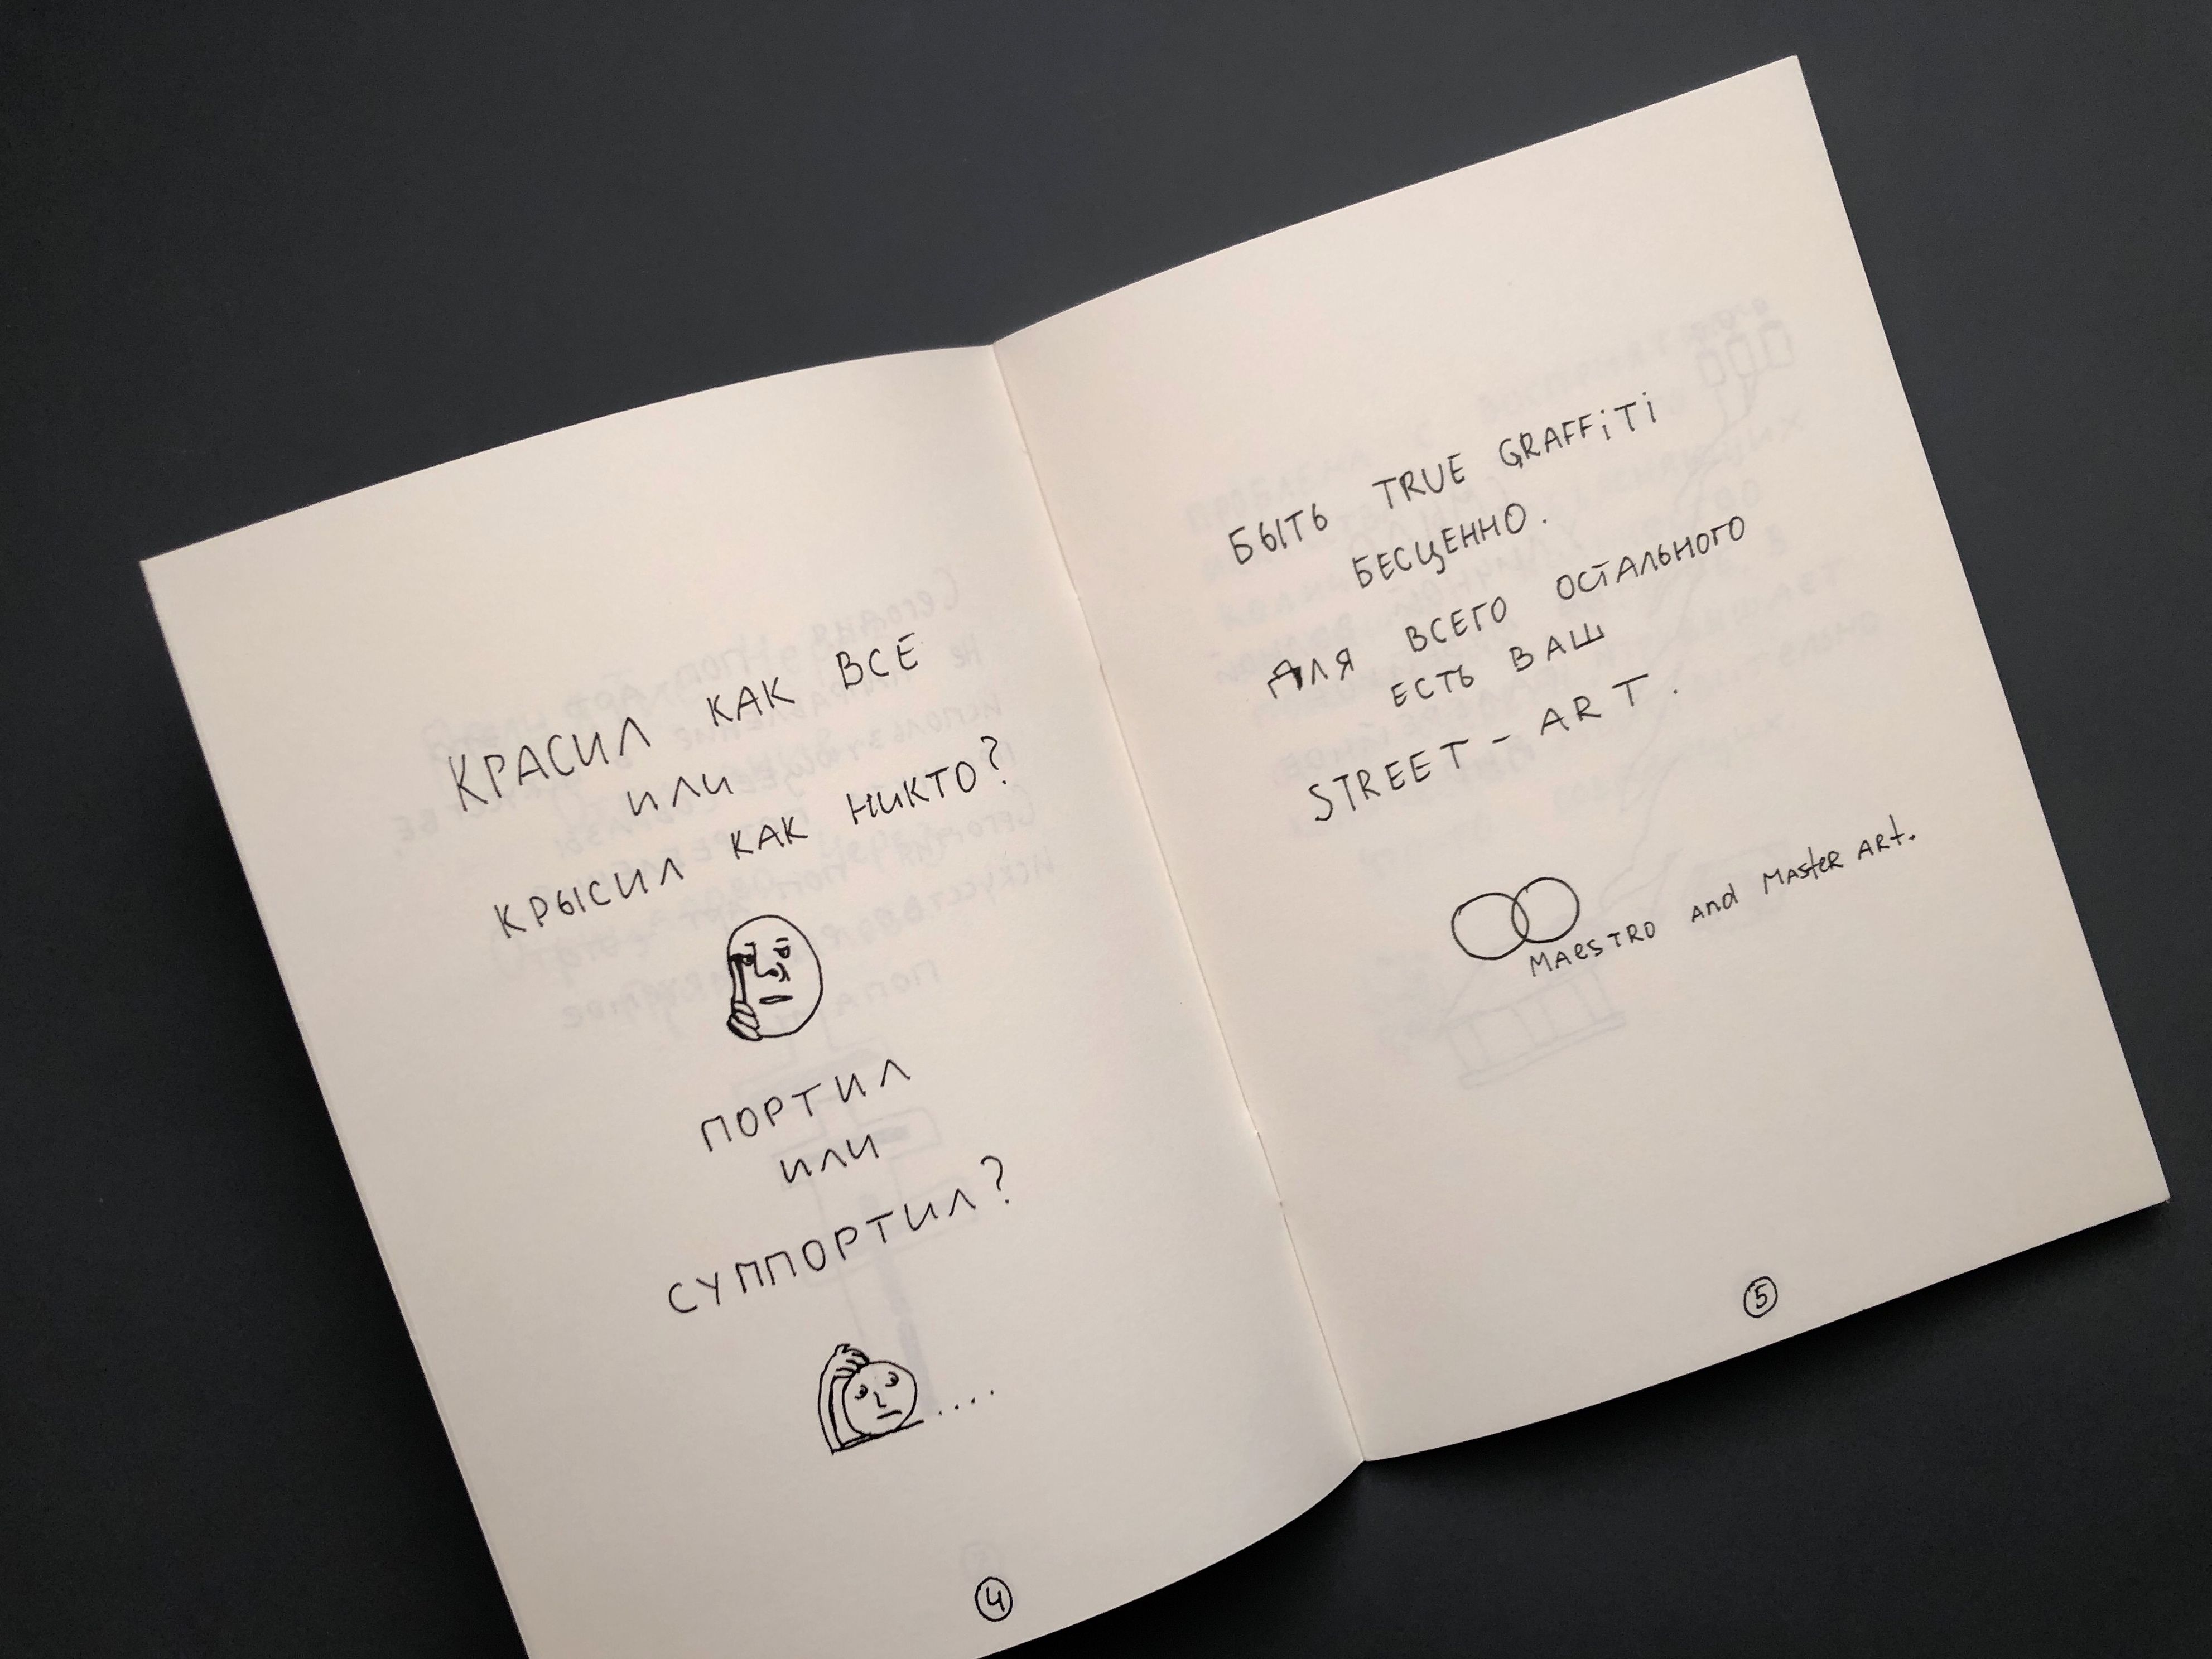 КРАСИЛ КАК ВСЕ
ИЛИ
КРЫСИЛ КАК НИКТО?
ПОРТИЛ
ИЛИ
СУППОРТИЛ?
....
4
БЫТЬ TRUE GRAFFiTi
БЕСЦЕННО.
ДЛЯ ВСЕГО ОСТАЛЬНОГО
ЕСТЬ ВАШ
STREET-ART.
MAeSTRO and MAsteR ARt.
5